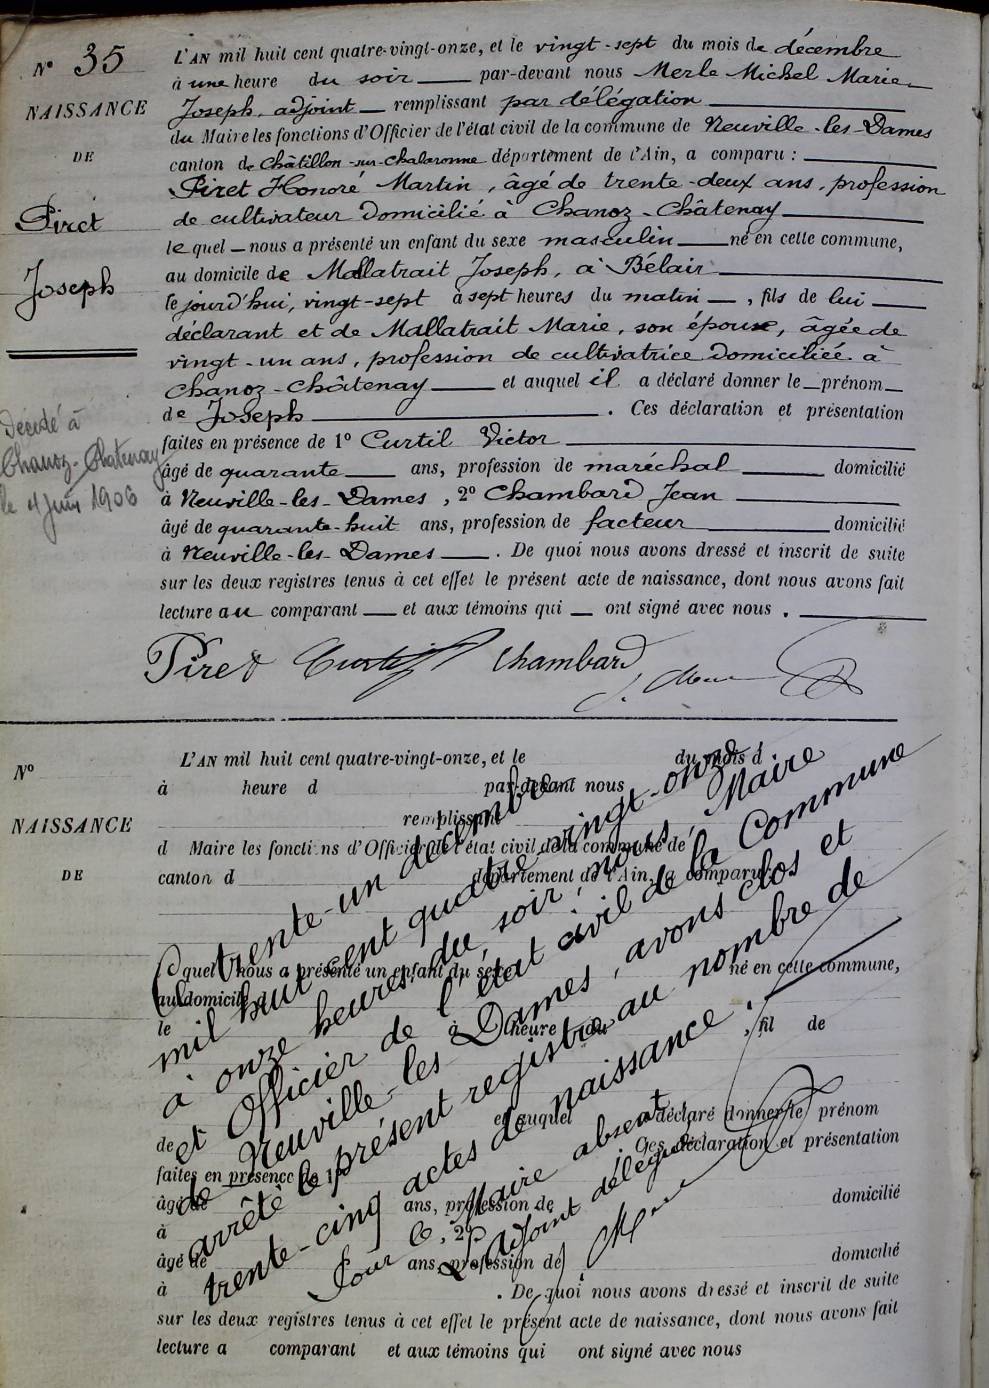 N° 35
NAISSANCE
DE
Piret
Joseph
Décédé à
Chanoz-Chatenay
le 4 juin 1906
L'AN mil huit cent quatre-vingt-onze, et le vingt-sept du mois de décembre
à une heure du soir par-devant nous Merle Michel Marie
Joseph, adjoint remplissant par délégation
du Maire les fonctions d'Officier de l'état civil de la commune de Neuville-les-Dames
canton de Châtillon-sur-Chalaronne département de l'Ain, a comparu :
Piret Honoré Martin, âgé de trente-deux ans, profession
de cultivateur domicilié à Chanoz-Châtenay
lequel nous a présenté un enfant du sexe masculin né en cette commune,
au domicile de Mallatrait Joseph, à Bélair
le jourd'hui, vingt-sept à sept heures du matin, fils de lui
déclarant et de Mallatrait Marie, son épouse, âgée de
vingt-un ans, profession de cultivatrice domiciliée à
Chanoz-Châtenay et auquel il a déclaré donner le prénom
de Joseph. Ces déclaration et présentation
faites en présence de 1° Curtil Victor
âgé de quarante ans, profession de maréchal domicilié
à Neuville-les-Dames, 2° Chambard Jean
âgé de quarante-huit ans, profession de facteur domicilié
à Neuville-les-Dames. De quoi nous avons dressé et inscrit de suite
sur les deux registres tenus à cet effet le présent acte de naissance, dont nous avons fait
lecture au comparant et aux témoins qui ont signé avec nous.
Piret Curtil Chambard
N°
NAISSANCE
DE
L'AN mil huit cent quatre-vingt-onze, et le du mois d
à heure d par-devant nous
remplissant
d Maire les fonctions d'Officier de l'état civil de la commune de
canton d département de l'Ain, a comparu :
quel nous a présenté un enfant du sexe né en cette commune,
au domicile d
le à heure du , fil de
de et auquel a déclaré donner le prénom
Ces déclaration et présentation
faites en présence de 1°
âgé de ans, profession de domicilié
à , 2°
âgé de ans, profession de domicilié
à . De quoi nous avons dressé et inscrit de suite
sur les deux registres tenus à cet effet le présent acte de naissance, dont nous avons fait
lecture a comparant et aux témoins qui ont signé avec nous
Ce trente-un décembre
mil huit cent quatre-vingt-onze
à onze heures du soir, nous, Maire
et Officier de l'état civil de la Commune
de Neuville-les-Dames, avons clos et
arrêté le présent registre au nombre de
trente-cinq actes de naissance.
Pour le Maire absent
L'adjoint délégué